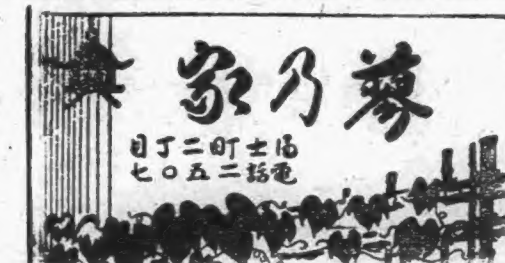 乃家
冨士町二丁目
電話二五〇七